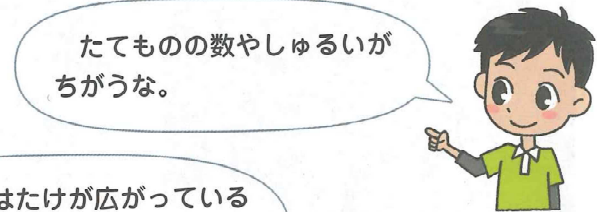 たてものの数やしゅるいが
ちがうな。
はたけが広がっている